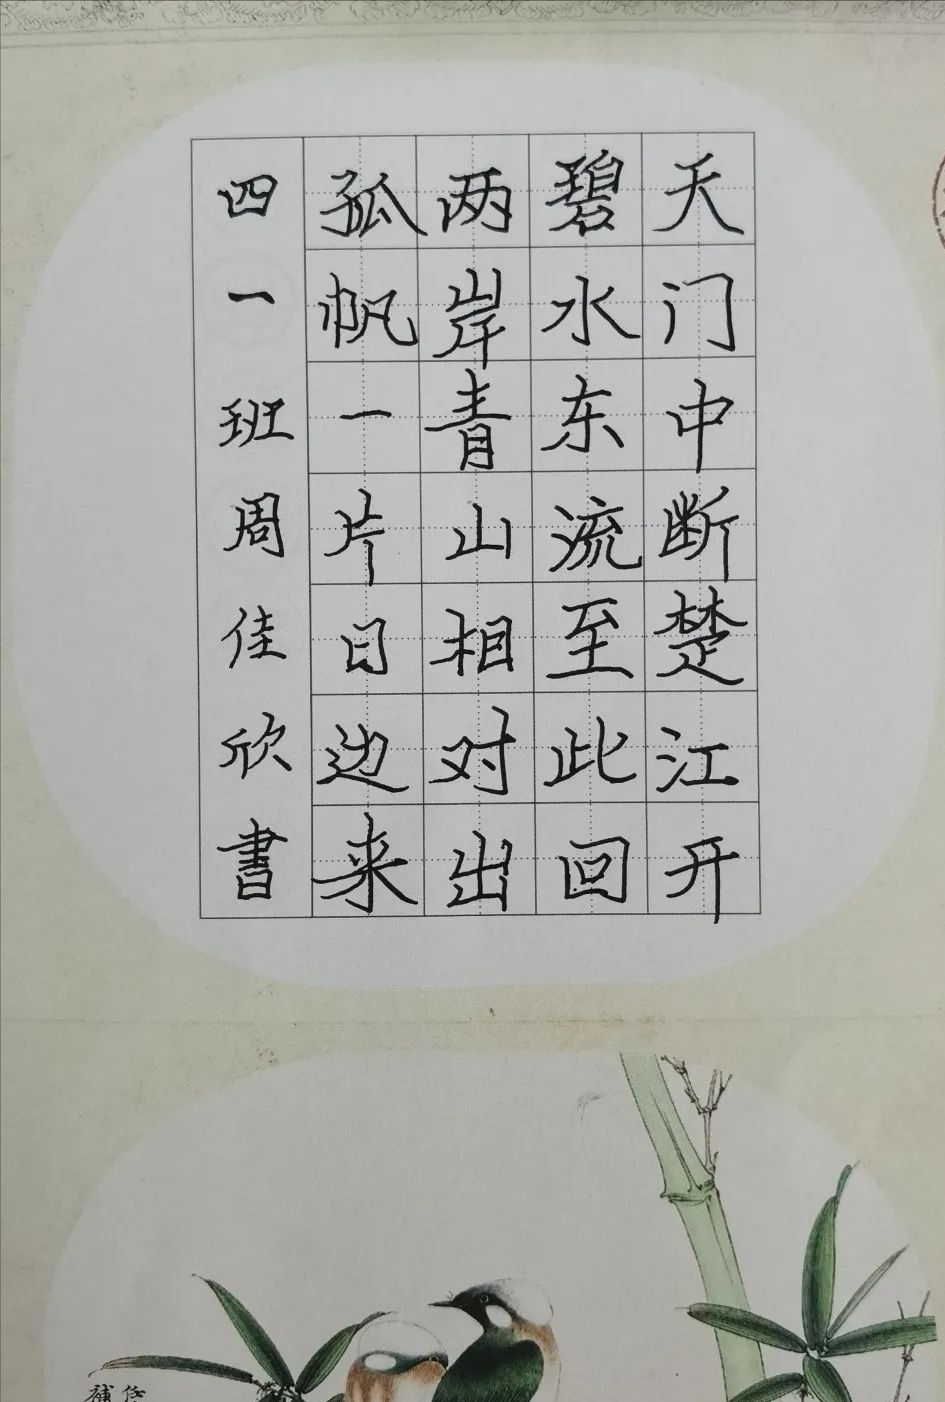 天门中断楚江开
碧水东流至此回
两岸青山相对出
孤帆一片日边来
四一班周佳欣書